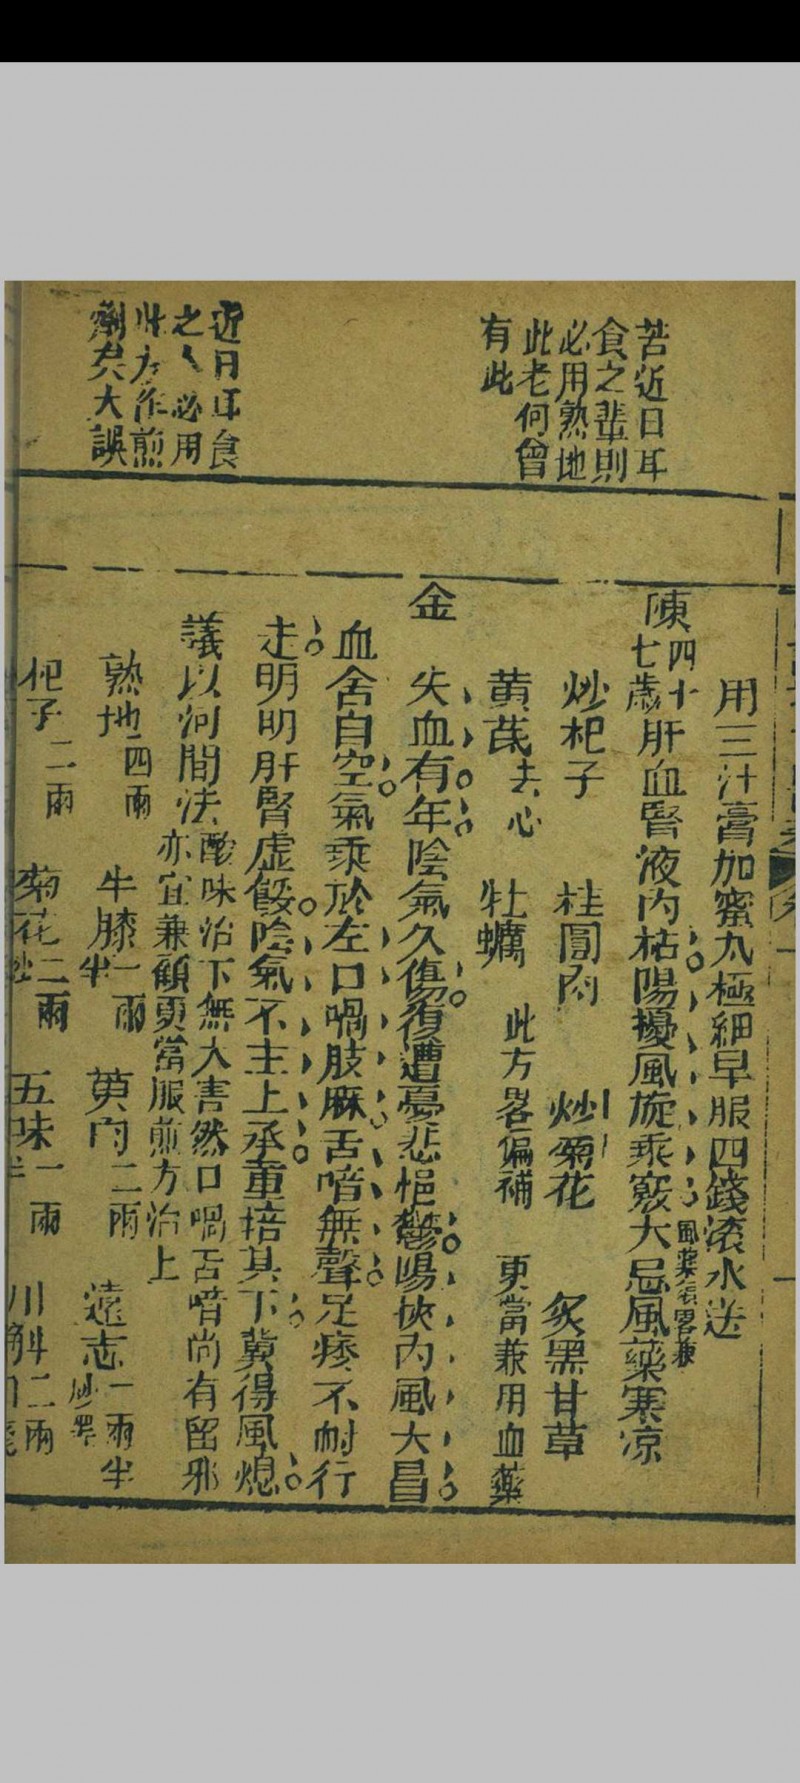 苦近日耳
食之輩則
必用熟地
此老何曾
有此
近日耳食
之人必用
此方作煎
劑矣大誤
用三汁膏加蜜丸極細早服四錢滚水送
陳四十七歲肝血腎液内枯陽擾風旋乘竅大忌風藥寒凉
炒杞子　桂圓肉　炒菊花　炙黑甘草
黄芪去心　牡蠣　此方畧偏補　更當兼用血藥
金　失血有年陰氣久傷復遭憂悲悒鬱陽挾内風大昌
血舍自空氣乘於左口喎肢麻舌喑無聲足痿不耐行
走明明肝腎虚餒陰氣不主上承重培其下冀得風熄
議以河間法酸味治下無大害然口喎舌喑尚有留邪
亦宜兼顧更當服煎方治上
熟地四兩　牛膝一兩半　萸肉二兩　遠志一兩半炒黑
杞子二兩　菊花二兩炒　五味一兩半　川斛二兩